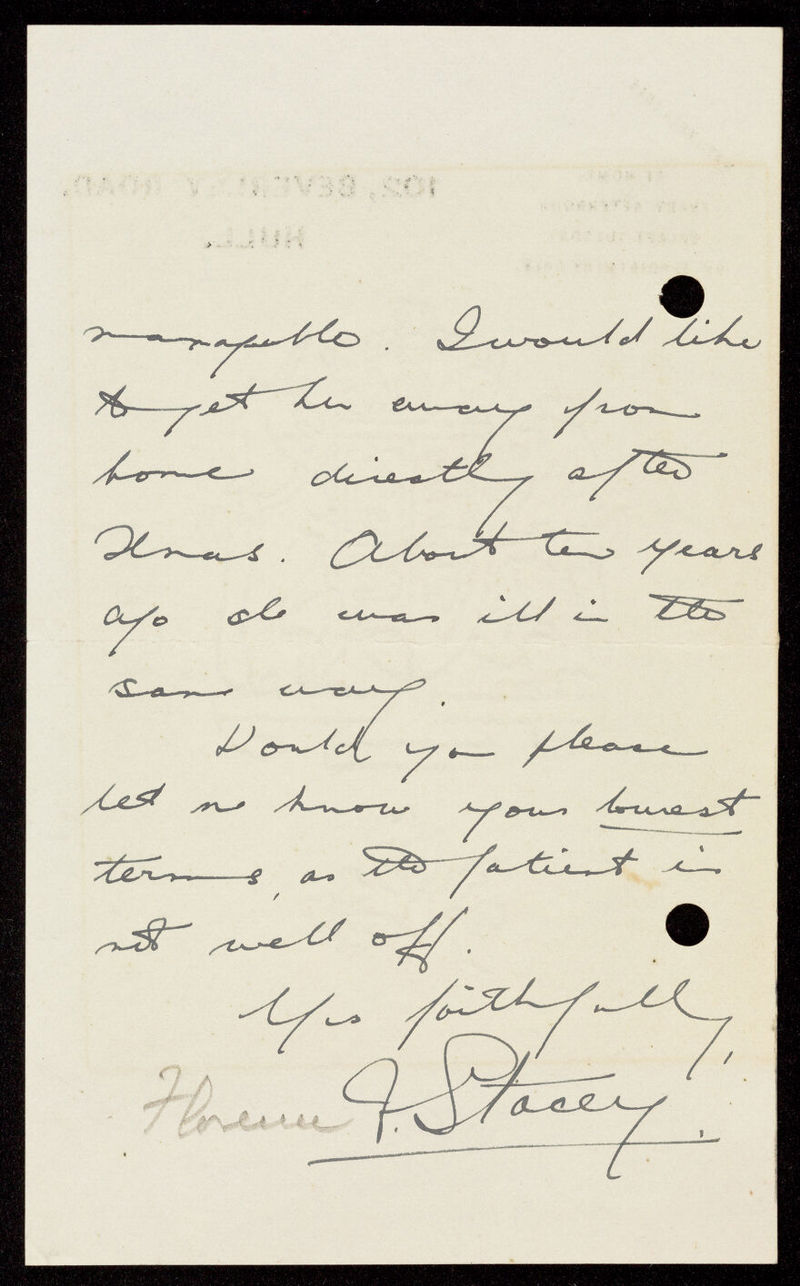 102, BEVERLEY ROAD,
HULL.
AT HOME.
EVERY AFTERNOON
manageable. I would like
to get her away from
home directly after
Xmas. About ten years
ago she was ill in the
same way.
Would you please
let me know your lowest
terms, as the patient is
not well off.
Yrs faithfully,
Florence F. Stacey.